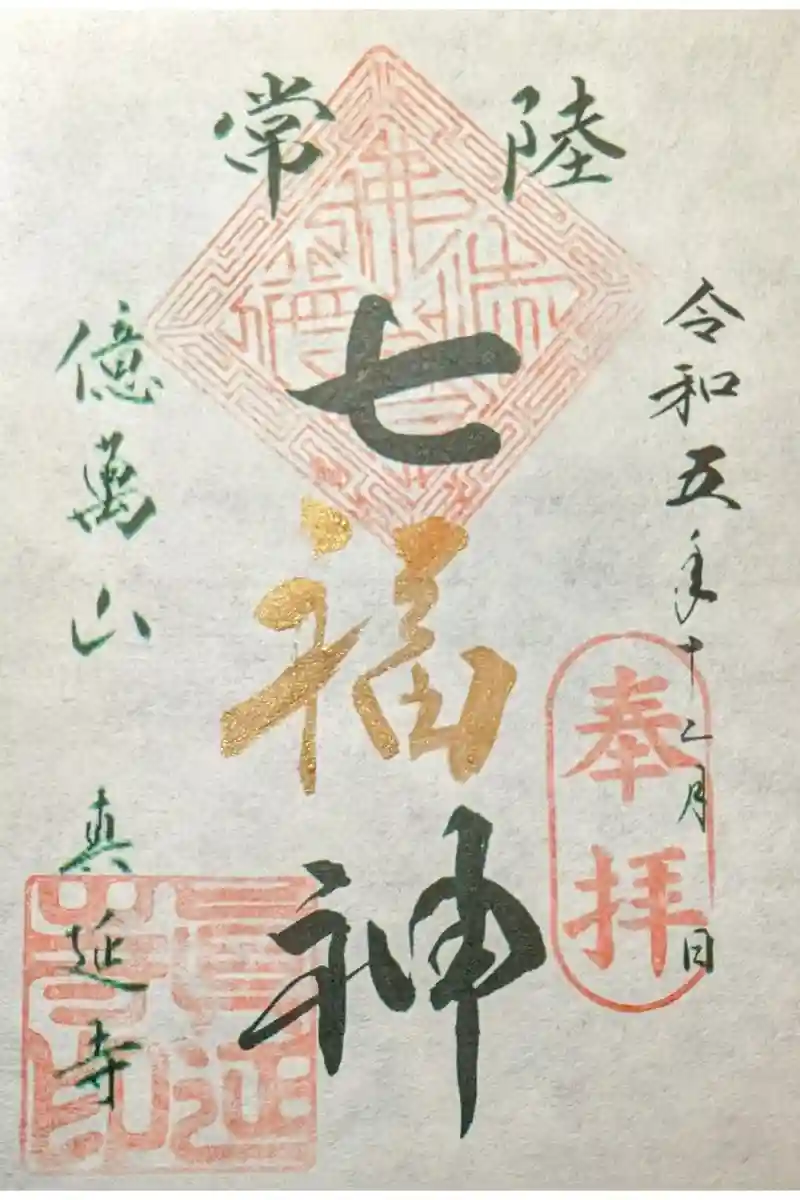 常陸
七福神
令和五年十二月 日
奉拝
億萬山 真延寺